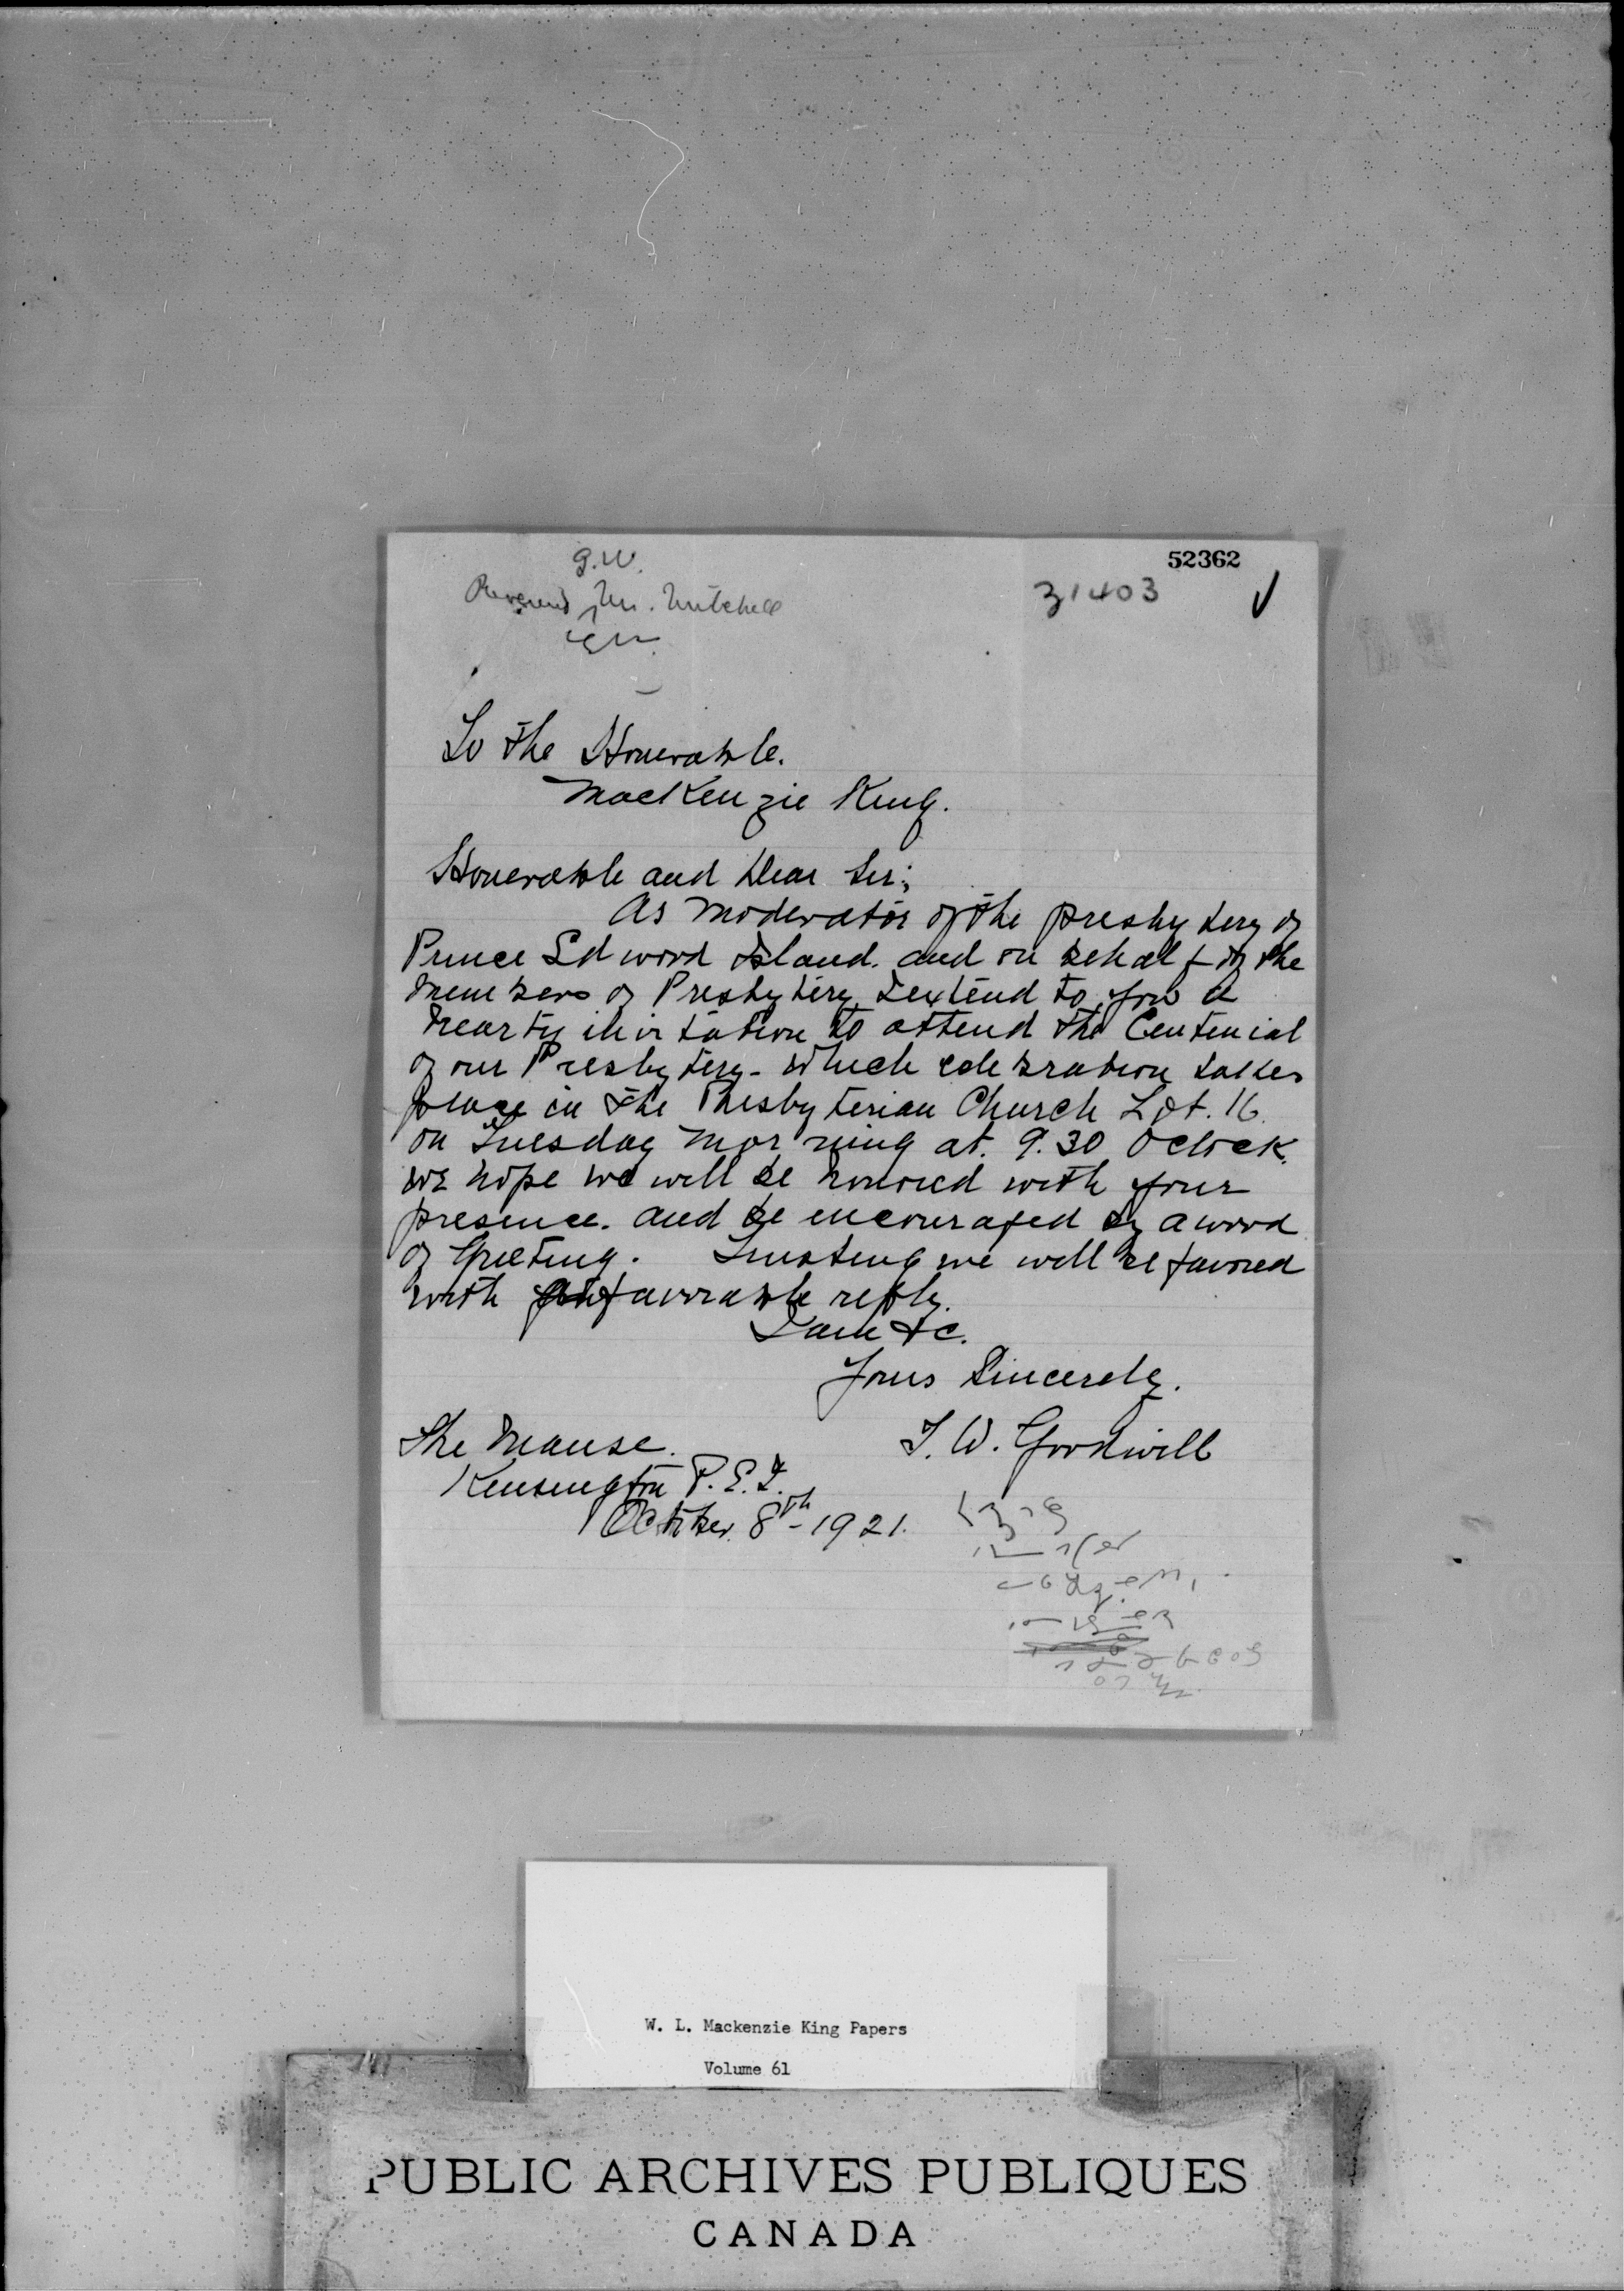 G.W.
52362
Reverend Mr. Mitchell
31403
To the Honerable.
MacKenzie King.
Honerable and Dear Sir;
As Moderator of the presbytery of
Prince Edword Island. and on behalf of the
members of Presbytery I extend to you a
hearty invitation to attend the Centenial
of our Presbytery - Which celebration takes
place in the Presbyterian Church Lot. 16.
on Tuesday Morning at. 9.30 Oclock.
We hope we will be honored with your
presence. and be encouraged by a word
of Greeting. Trusting we will be favored
with favorable reply.
I am &c.
Yours Sincerely.
The Manse. T. W. Goodwill
Kensington P.E.I.
October. 8th - 1921.
W. L. Mackenzie King Papers
Volume 61
PUBLIC ARCHIVES PUBLIQUES
CANADA